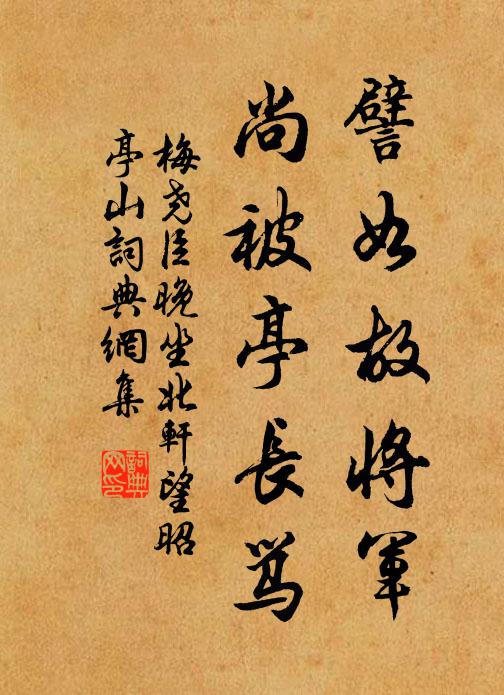 譬如故將軍
尚被亭長罵
梅堯臣晚坐北軒望昭
亭山詞典網集
詞典
网印